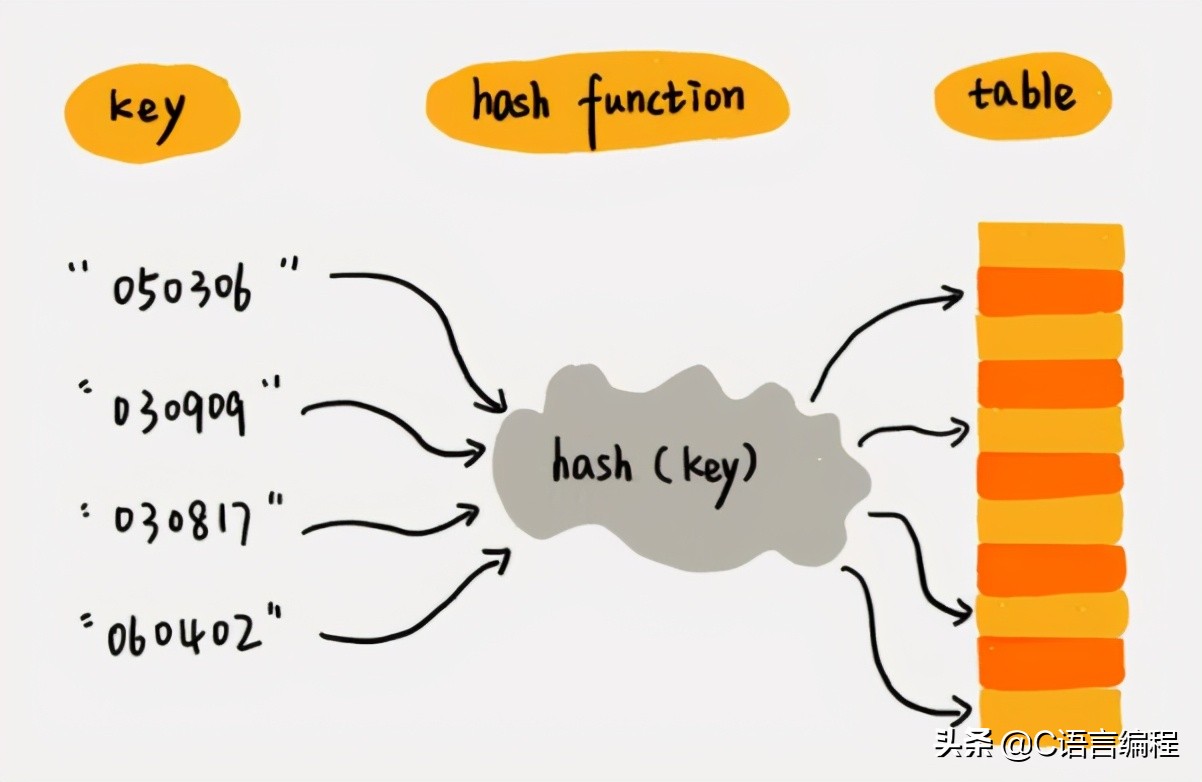 key
hash function
table
" 050306 "
" 030909 "
" 030817 "
" 060402 "
hash (key)
头条 @C语言编程